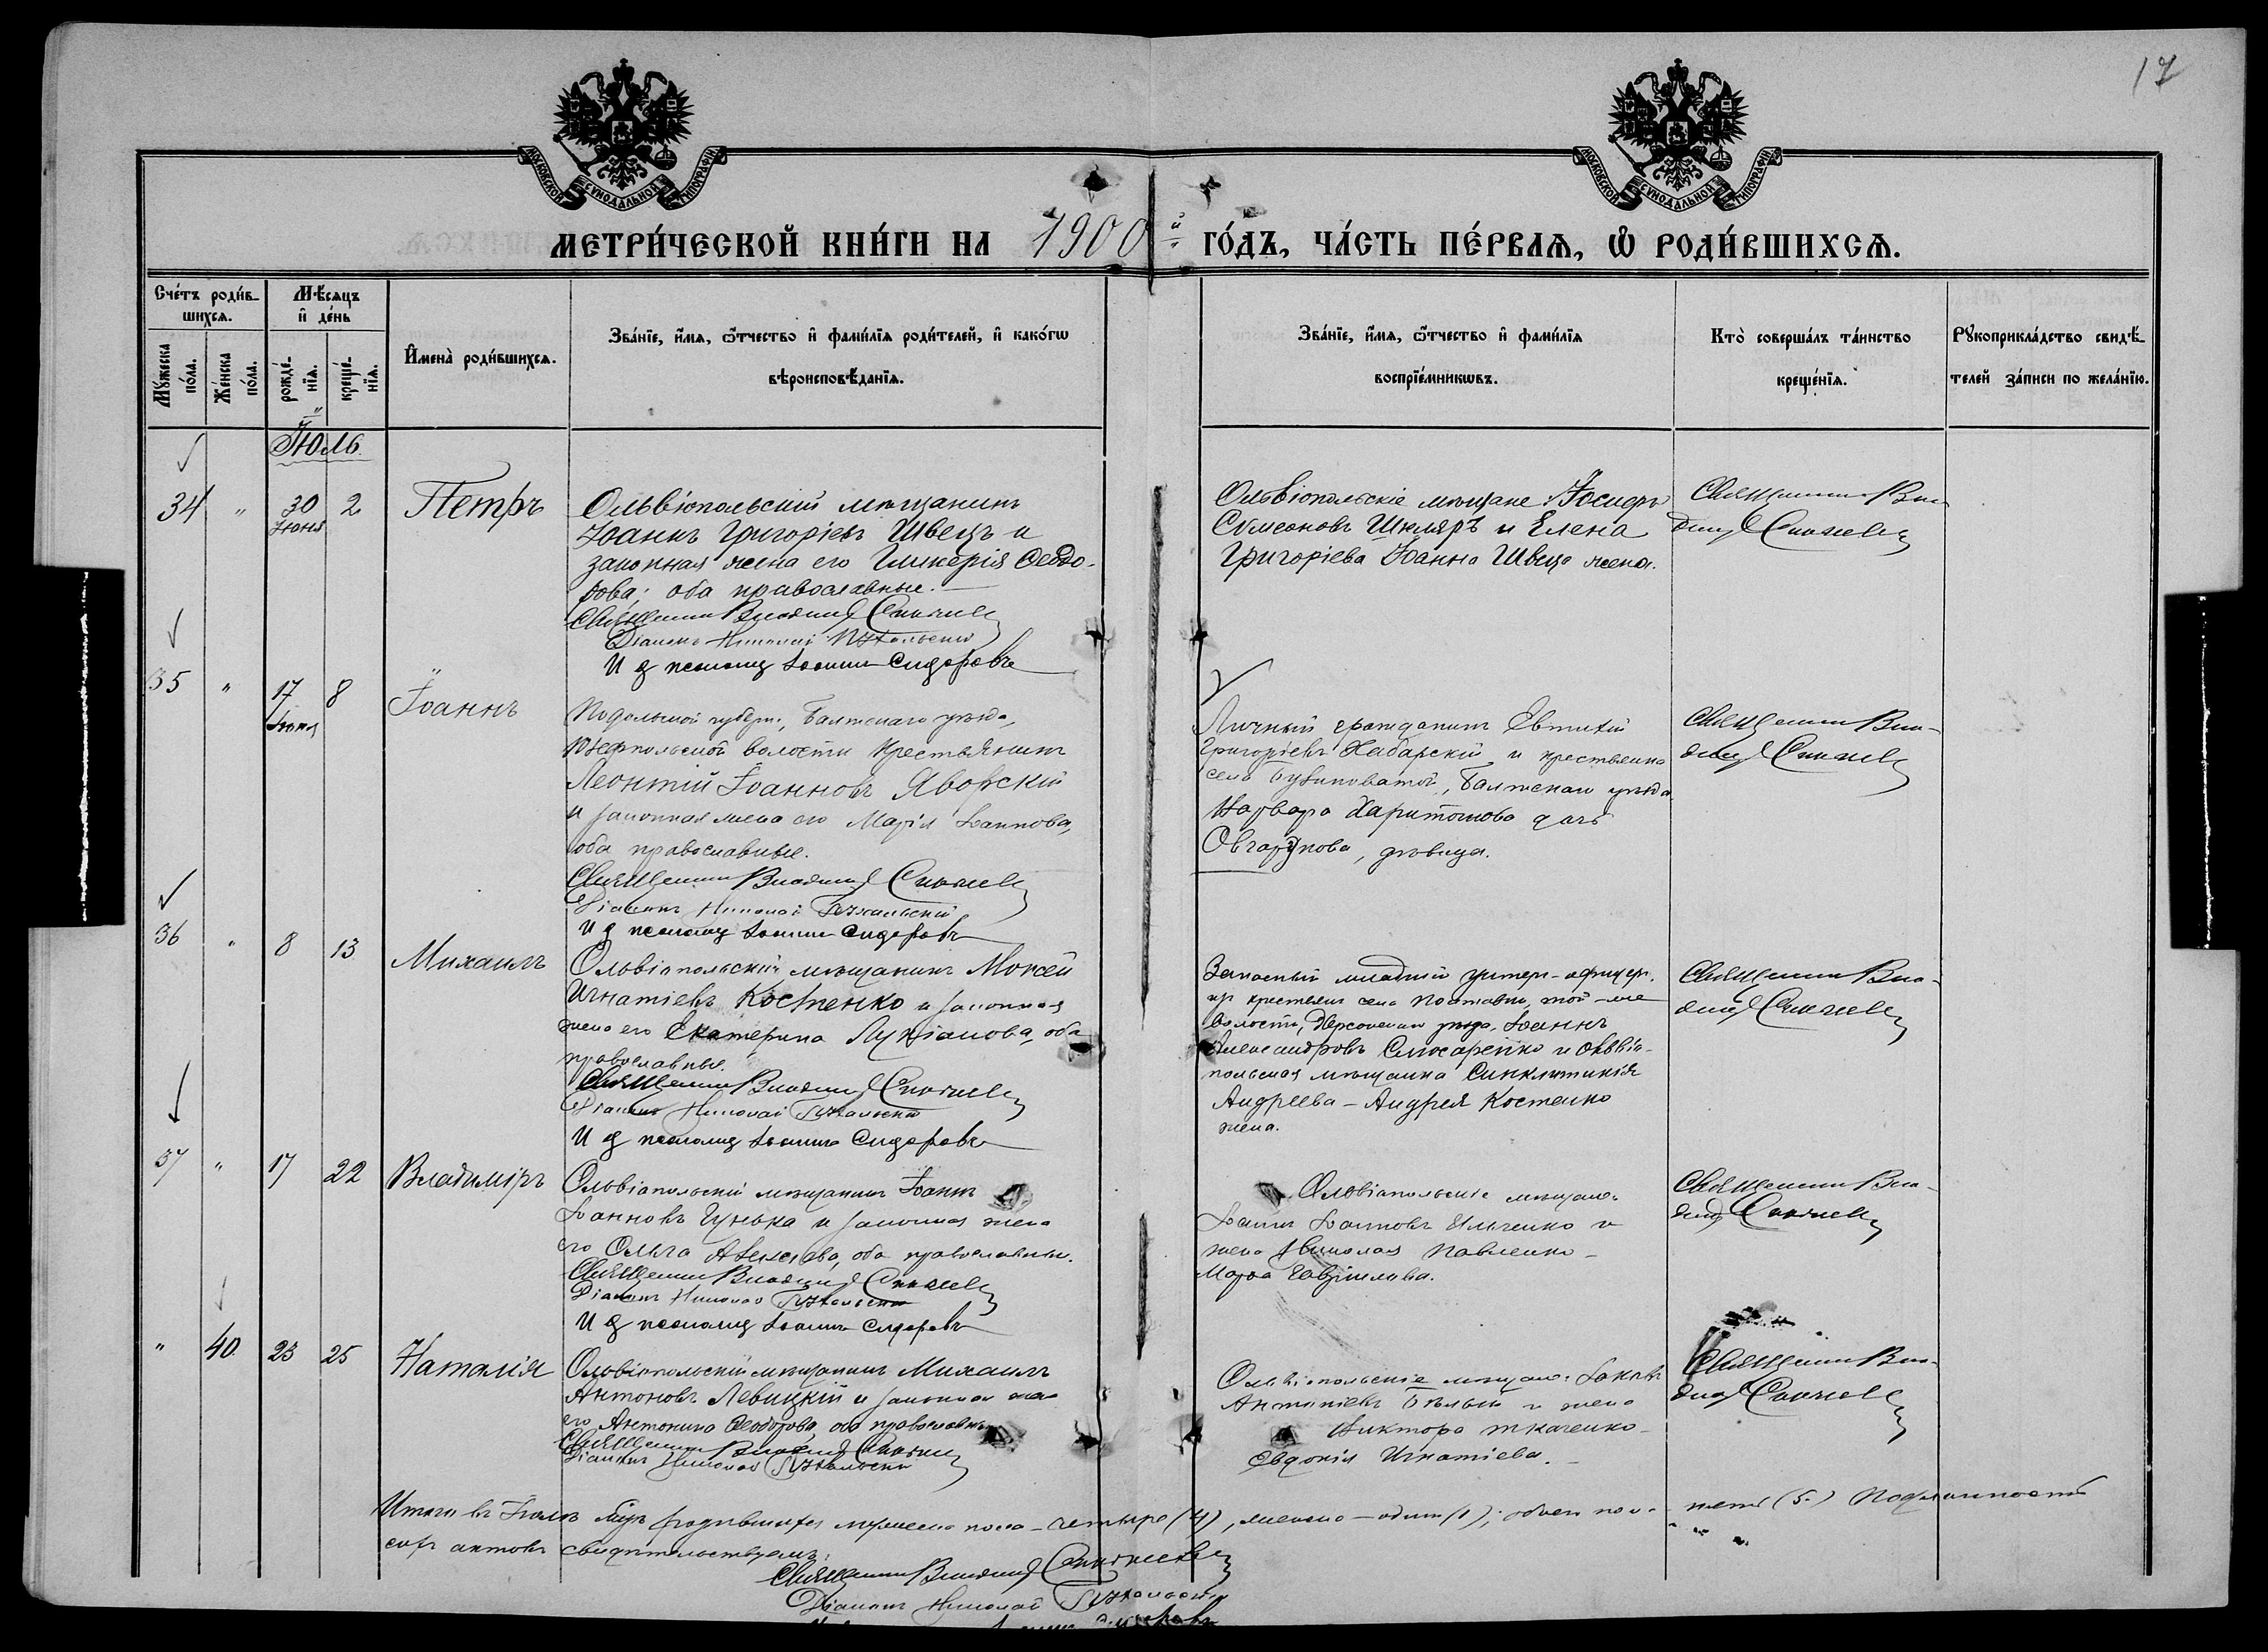 17
МОСКОВСКОЙ СѴНОДАЛЬНОЙ ТИПОГРАФІИ.
МОСКОВСКОЙ СѴНОДАЛЬНОЙ ТИПОГРАФІИ.
МЕТРИ́ЧЕСКОЙ КНИ́ГИ НА 1900й ГО́ДЪ, ЧА́СТЬ ПЕ́РВАѦ, Ѡ РОДИ́ВШИХСѦ.
Сче́тъ роди́в-
шихсѧ.
Мꙋ́жеска
по́ла.
Же́нска
по́ла.
Мѣ́сѧцъ
и҆ де́нь
рожде́-
нїѧ.
креще́-
нїѧ.
И҆мена̀ роди́вшихсѧ.
Зва́нїе, и҆́мѧ, ѻ҆́тчество и҆ фами́лїѧ роди́телей, и҆ како́гѡ
вѣроисповѣ́данїѧ.
Зва́нїе, и҆́мѧ, ѻ҆́тчество и҆ фами́лїѧ
воспрїе́мникѡвъ.
Кто̀ соверша́лъ та́инство
креще́нїѧ.
Рꙋкоприкла́дство свидѣ́-
телей за́писи по жела́нїю.
Іюль
34 " 30 Іюня 2 Петръ
Ольвіопольскій мѣщанинъ
Іоаннъ Григоріевъ Швецъ и
законная жена его Гликерія Ѳеодо-
рова; оба православные.
Священникъ Владимір
Діаконъ Николай
И д псаломщ Іоаннъ Сидоровъ
Ольвіопольскіе мѣщане: Іосифъ
Сѵмеоновъ Шкляръ и Елена
Григоріева Іоанна Швеца жена.
Священникъ Вла-
димір
35 " 17 Іюня 8 Іоаннъ
Подольской губерн., Балтскаго уѣзда,
волости крестьянинъ
Леонтій Іоанновъ Яворскій
и законная жена его Марія Іоаннова,
оба православные.
Священникъ Владимір
Діаконъ Николай
И д псаломщ Іоаннъ Сидоровъ
Личный гражданинъ Евтихій
Григоріевъ Хабарскій и крестьянка
села, Балтскаго уѣзда
Варвара Харитонова дочь
, дѣвица.
Священникъ Вла-
димір
36 " 8 13 Михаилъ
Ольвіопольскій мѣщанинъ Моисей
Игнатіевъ Костенко и законная
жена его Екатерина Лукіанова, оба
православные.
Священникъ Владимір
Діаконъ Николай
И д псаломщ Іоаннъ Сидоровъ
Запасный младшій унтеръ-офицеръ
изъ крестьянъ села, той-же
волости, Херсонскаго уѣзда, Іоаннъ
Александровъ Слюсаренко и Ольвіо-
польская мѣщанка Синклитикія
Андреева - Андрея Костенко
жена.
Священникъ Вла-
димір
37 " 17 22 Владиміръ
Ольвіопольскій мѣщанинъ Іоаннъ
Іоанновъ Гунька и законная жена
его Ольга Алексіева, оба православные.
Священникъ Владимір
Діаконъ Николай
И д псаломщ Іоаннъ Сидоровъ
Ольвіопольскіе мѣщане:
Іоаннъ Іоанновъ Ильченко и
жена Николая Павленко -
Марѳа Гавріилова.
Священникъ Вла-
димір
" 40 23 25 Наталія
Ольвіопольскій мѣщанинъ Михаилъ
Антоновъ Левицкій и законная жена
его Антонина Ѳеодорова, оба православные
Священникъ Владимір
Діаконъ Николай
Ольвіопольскіе мѣщане: Іаковъ
Бѣлый и жена
Виктора Ткаченко -
Евдокія Игнатіева.
Священникъ Вла-
димір
Итого въ Іюлѣ м-цѣ родившихся мужеска пола - четыре (4), женска - одинъ (1); обоего пола - пять (5.) Подлинность
сихъ актовъ свидѣтельствуемъ:
Священникъ Владимір
Діаконъ Николай